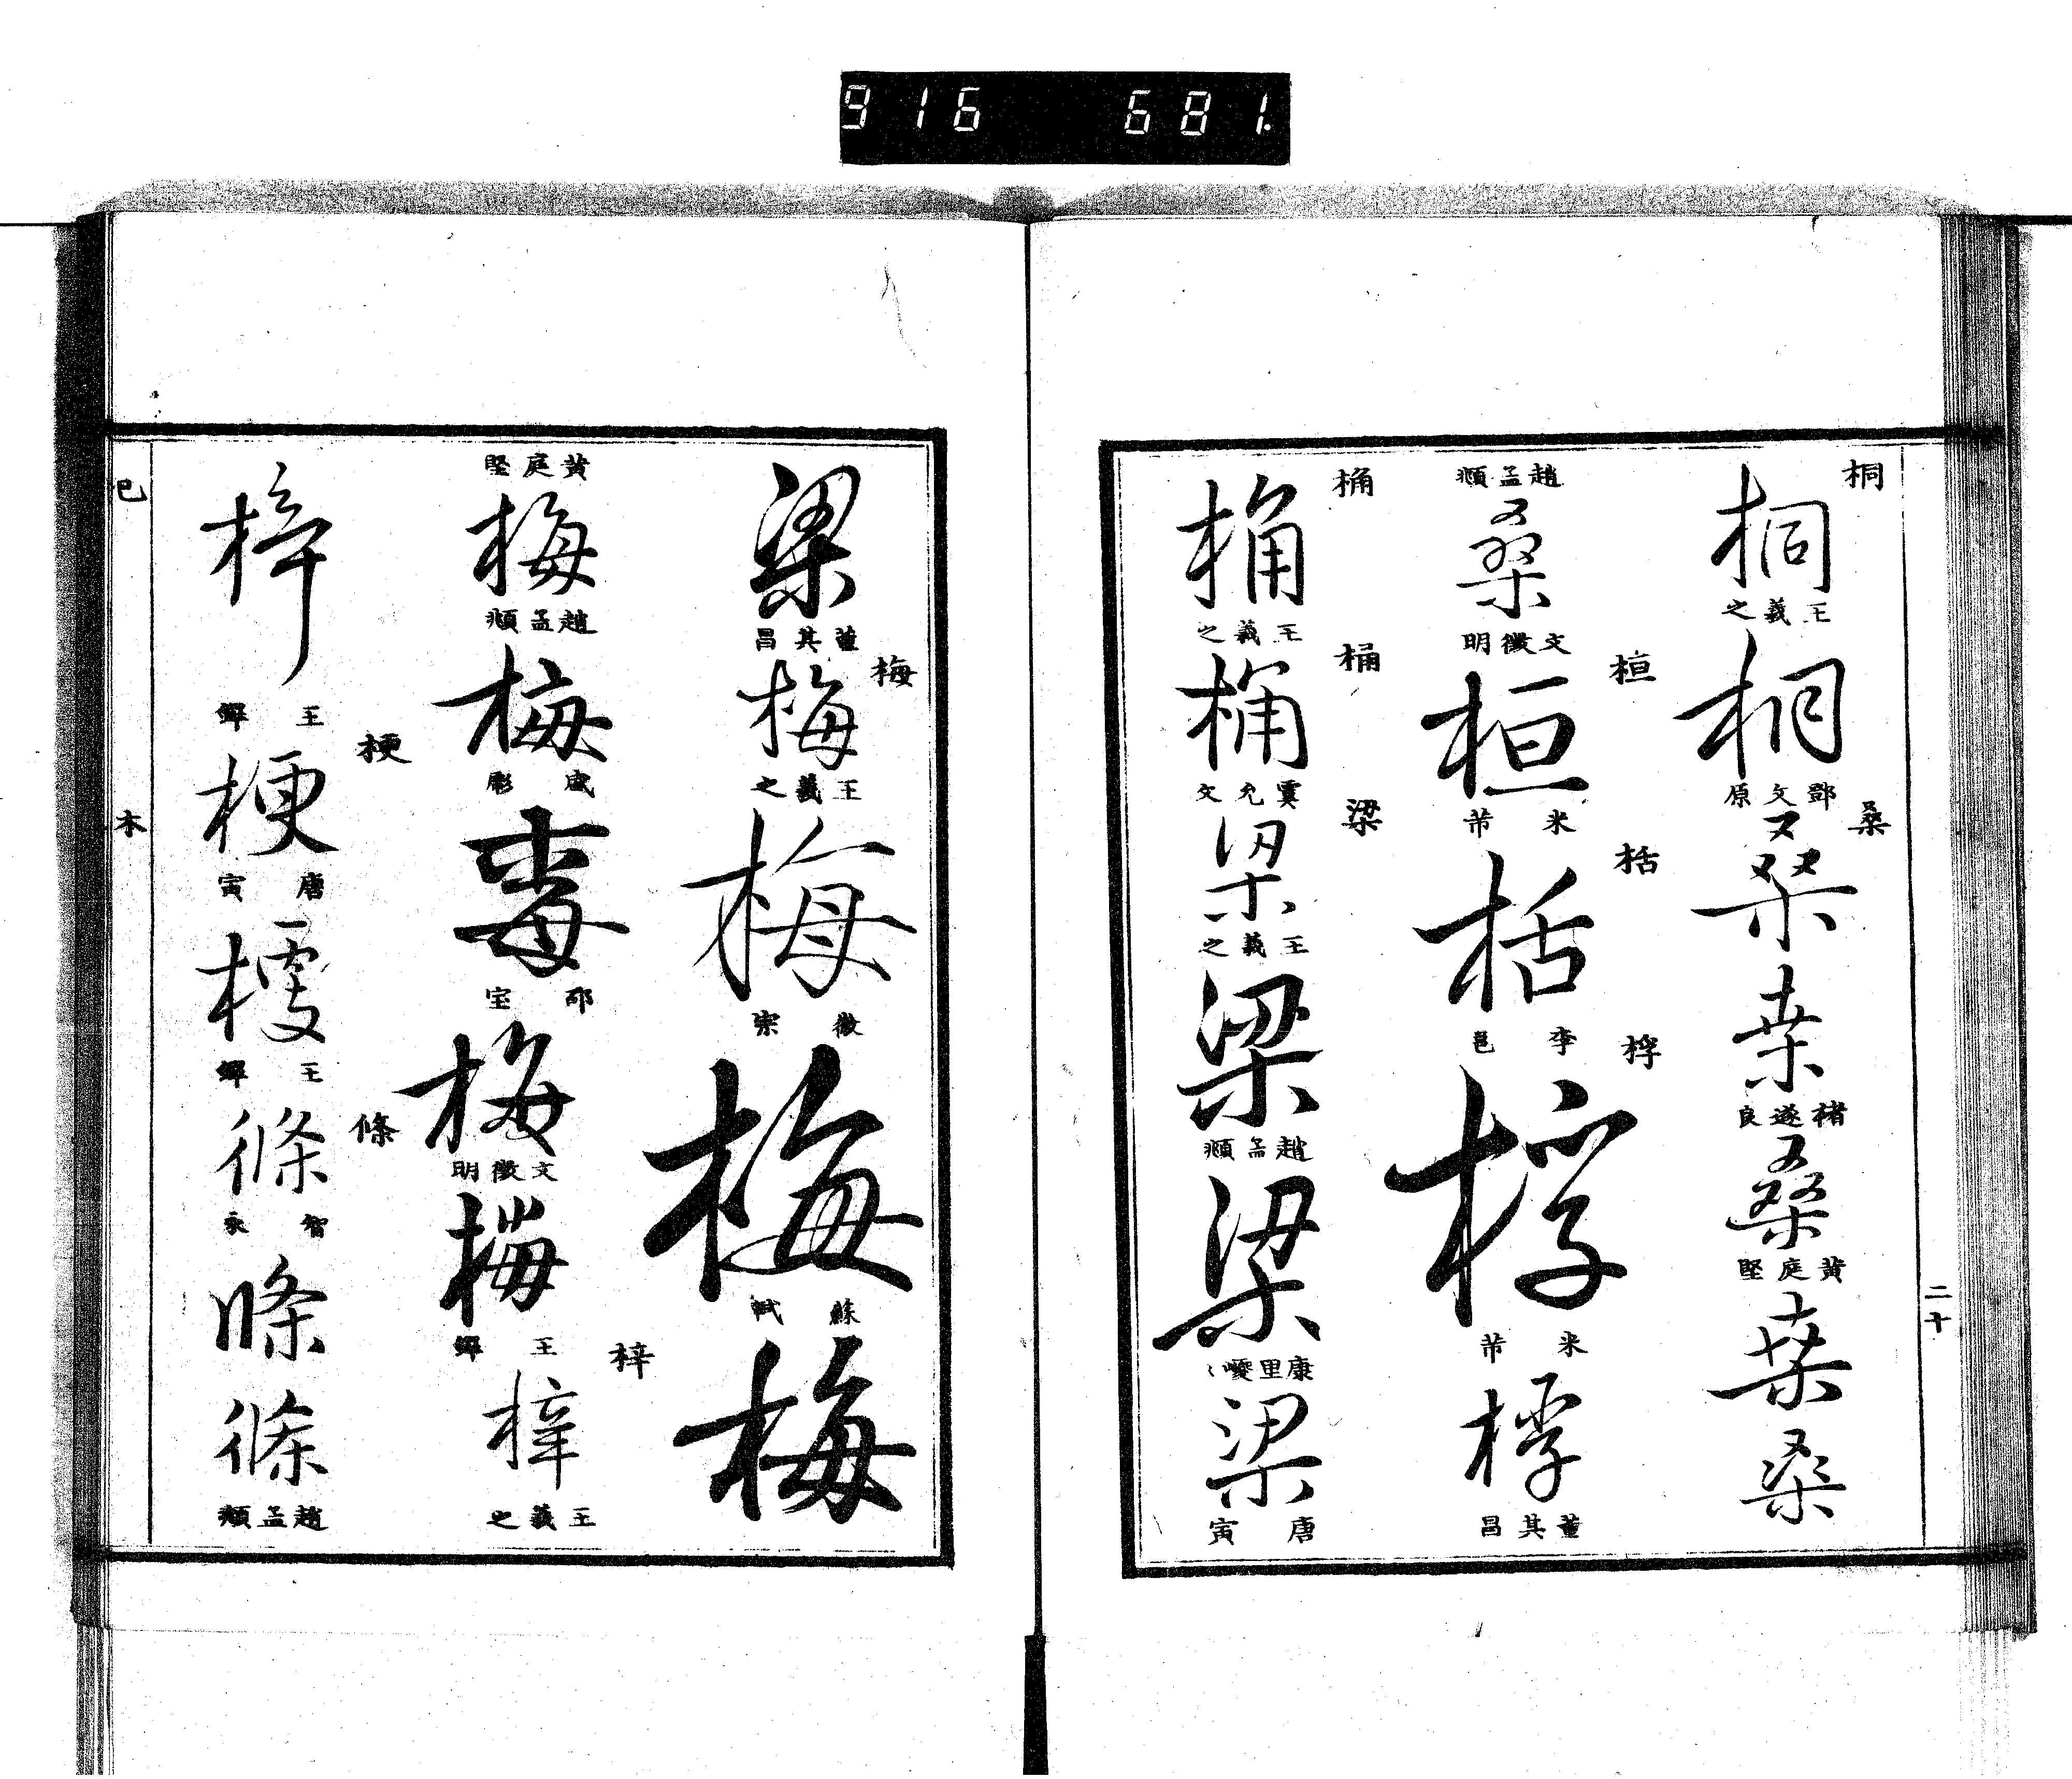 916 681.
桐
桐
王羲之
桐
鄧文原
桑
桑
桑
褚遂良
桑
黃庭堅
桑
桑
二十
趙孟頫
桑
文徵明
桓
桓
米芾
栝
栝
李邕
桴
桴
米芾
桴
董其昌
桷
桷
王羲之
桶
桶
虞允文
梁
梁
王羲之
梁
趙孟頫
梁
康里巎〻
梁
唐寅
梁
董其昌
梅
梅
王羲之
梅
徽宗
梅
蘇軾
梅
黃庭堅
梅
趙孟頫
梅
盛彪
邵宝
梅
文徵明
梅
王鐸
梓
梓
王羲之
梓
王鐸
梗
梗
唐寅
王鐸
條
條
智永
條
條
趙孟頫
巳
木